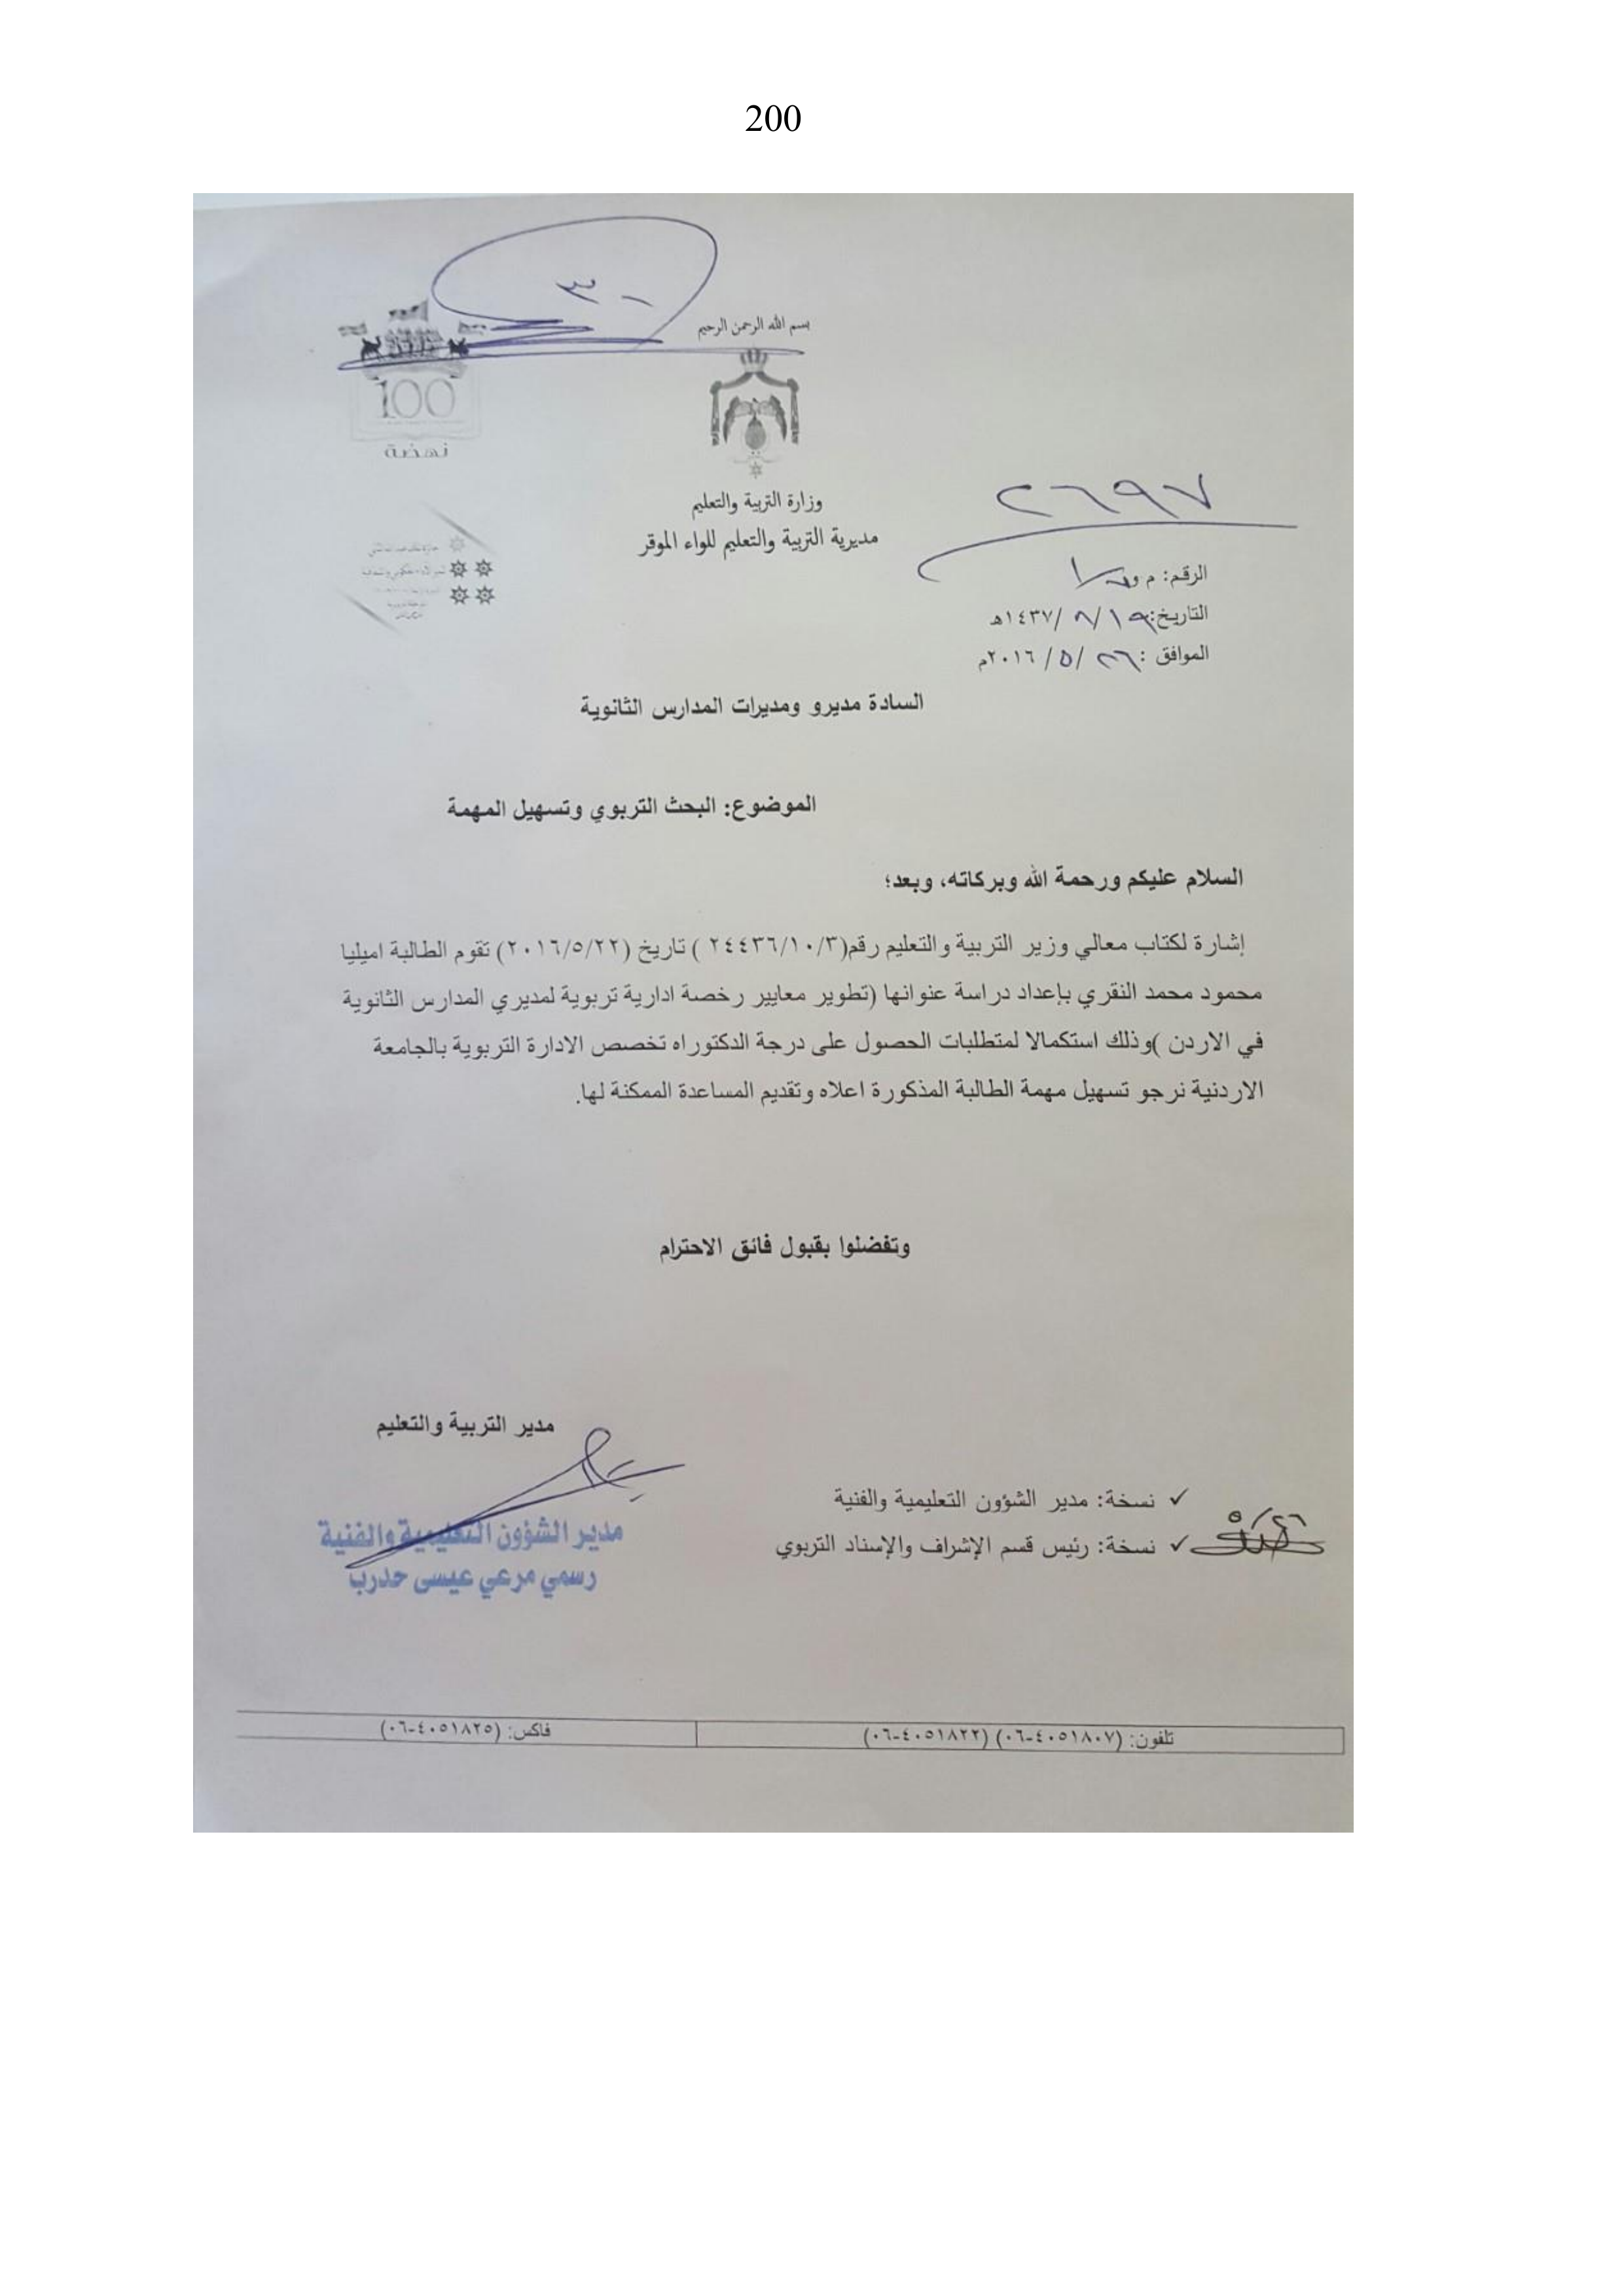 200
بسم الله الرحمن الرحيم
100
نهضة
وزارة التربية والتعليم
مديرية التربية والتعليم للواء الموقر
٢٦٩٧
الرقم: م و
التاريخ: ١٩/ ٨/ ١٤٣٧هـ
الموافق : ٢٦/ ٥/ ٢٠١٦م
السادة مديرو ومديرات المدارس الثانوية
الموضوع: البحث التربوي وتسهيل المهمة
السلام عليكم ورحمة الله وبركاته، وبعد؛
إشارة لكتاب معالي وزير التربية والتعليم رقم(٢٤٤٣٦/١٠/٣ ) تاريخ (٢٠١٦/٥/٢٢) تقوم الطالبة اميليا
محمود محمد النقري بإعداد دراسة عنوانها (تطوير معايير رخصة ادارية تربوية لمديري المدارس الثانوية
في الاردن )وذلك استكمالا لمتطلبات الحصول على درجة الدكتوراه تخصص الادارة التربوية بالجامعة
الاردنية نرجو تسهيل مهمة الطالبة المذكورة اعلاه وتقديم المساعدة الممكنة لها.
وتفضلوا بقبول فائق الاحترام
مدير التربية والتعليم
مدير الشؤون التعليمية والفنية
رسمي مرعي عيسى حدرب
✓ نسخة: مدير الشؤون التعليمية والفنية
✓ نسخة: رئيس قسم الإشراف والإسناد التربوي
٥/٢٦
تلفون: (٠٦-٤٠٥١٨٠٧) (٠٦-٤٠٥١٨٢٢)
فاكس: (٠٦-٤٠٥١٨٢٥)